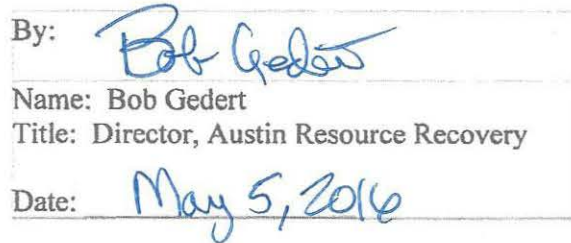 By: Bob Gedert
Name: Bob Gedert
Title: Director, Austin Resource Recovery
Date: May 5, 2016